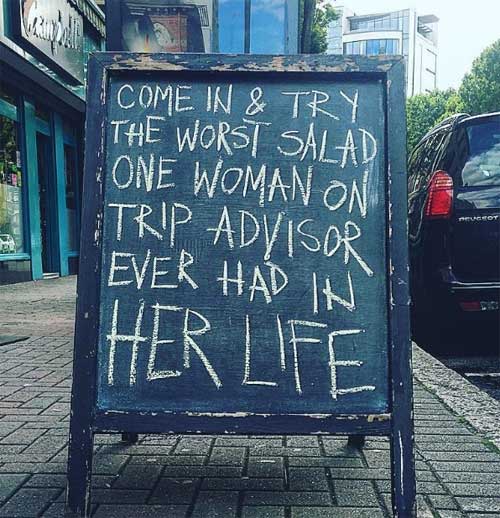 Campbell
COME IN & TRY
THE WORST SALAD
ONE WOMAN ON
TRIP ADVISOR
EVER HAD IN
HER LIFE
PEUGEOT